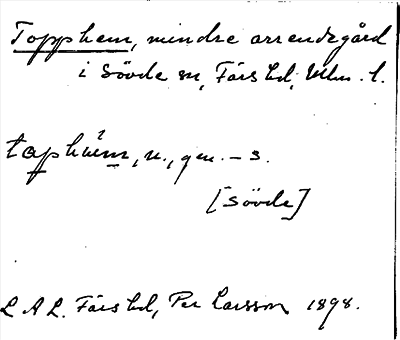 Topphem, mindre arrendegård
i Sövde sn, Färs hd, Mlm. l.
tɑphèm, n., gen. – s.
[Sövde]
L A L. Färs hd, Per Larsson 1898.